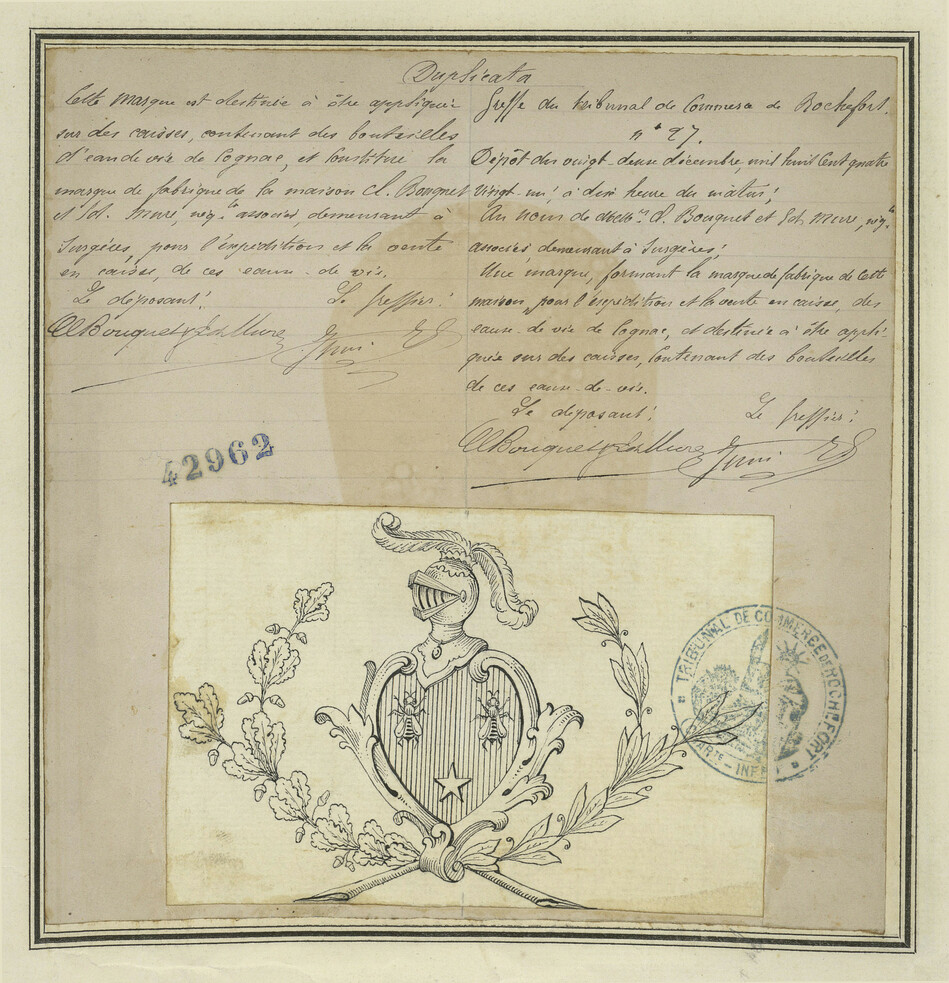 Duplicata
Cette marque est destinée à être appliquée
sur des caisses, contenant des bouteilles
d'eau de vie de Cognac, et constitue la
marque de fabrique de la maison Cl. Bouquet
et Ed. Mure, négts associés, demeurant à
Surgères, pour l'expédition et la vente
en caisse, de ces eaux-de-vie.
Le déposant: Le greffier:
Bouquet & Ed Mure
Greffe du tribunal de Commerce de Rochefort.
n° 97.
Dépôt du vingt-deux décembre, mil huit cent quatre
vingt-un, à dix heure du matin;
Au nom de Bouquet et Ed. Mure, négts
associés demeurant à Surgères;
Une marque, formant la marque de fabrique de cette
maison, pour l'expédition et la vente en caisse, des
eaux-de-vie de Cognac, et destinée à être appli-
quée sur des caisses, contenant des bouteilles
de ces eaux-de-vie.
Le déposant: Le greffier:
Bouquet & Ed Mure
42962
TRIBUNAL DE COMMERCE DE ROCHEFORT